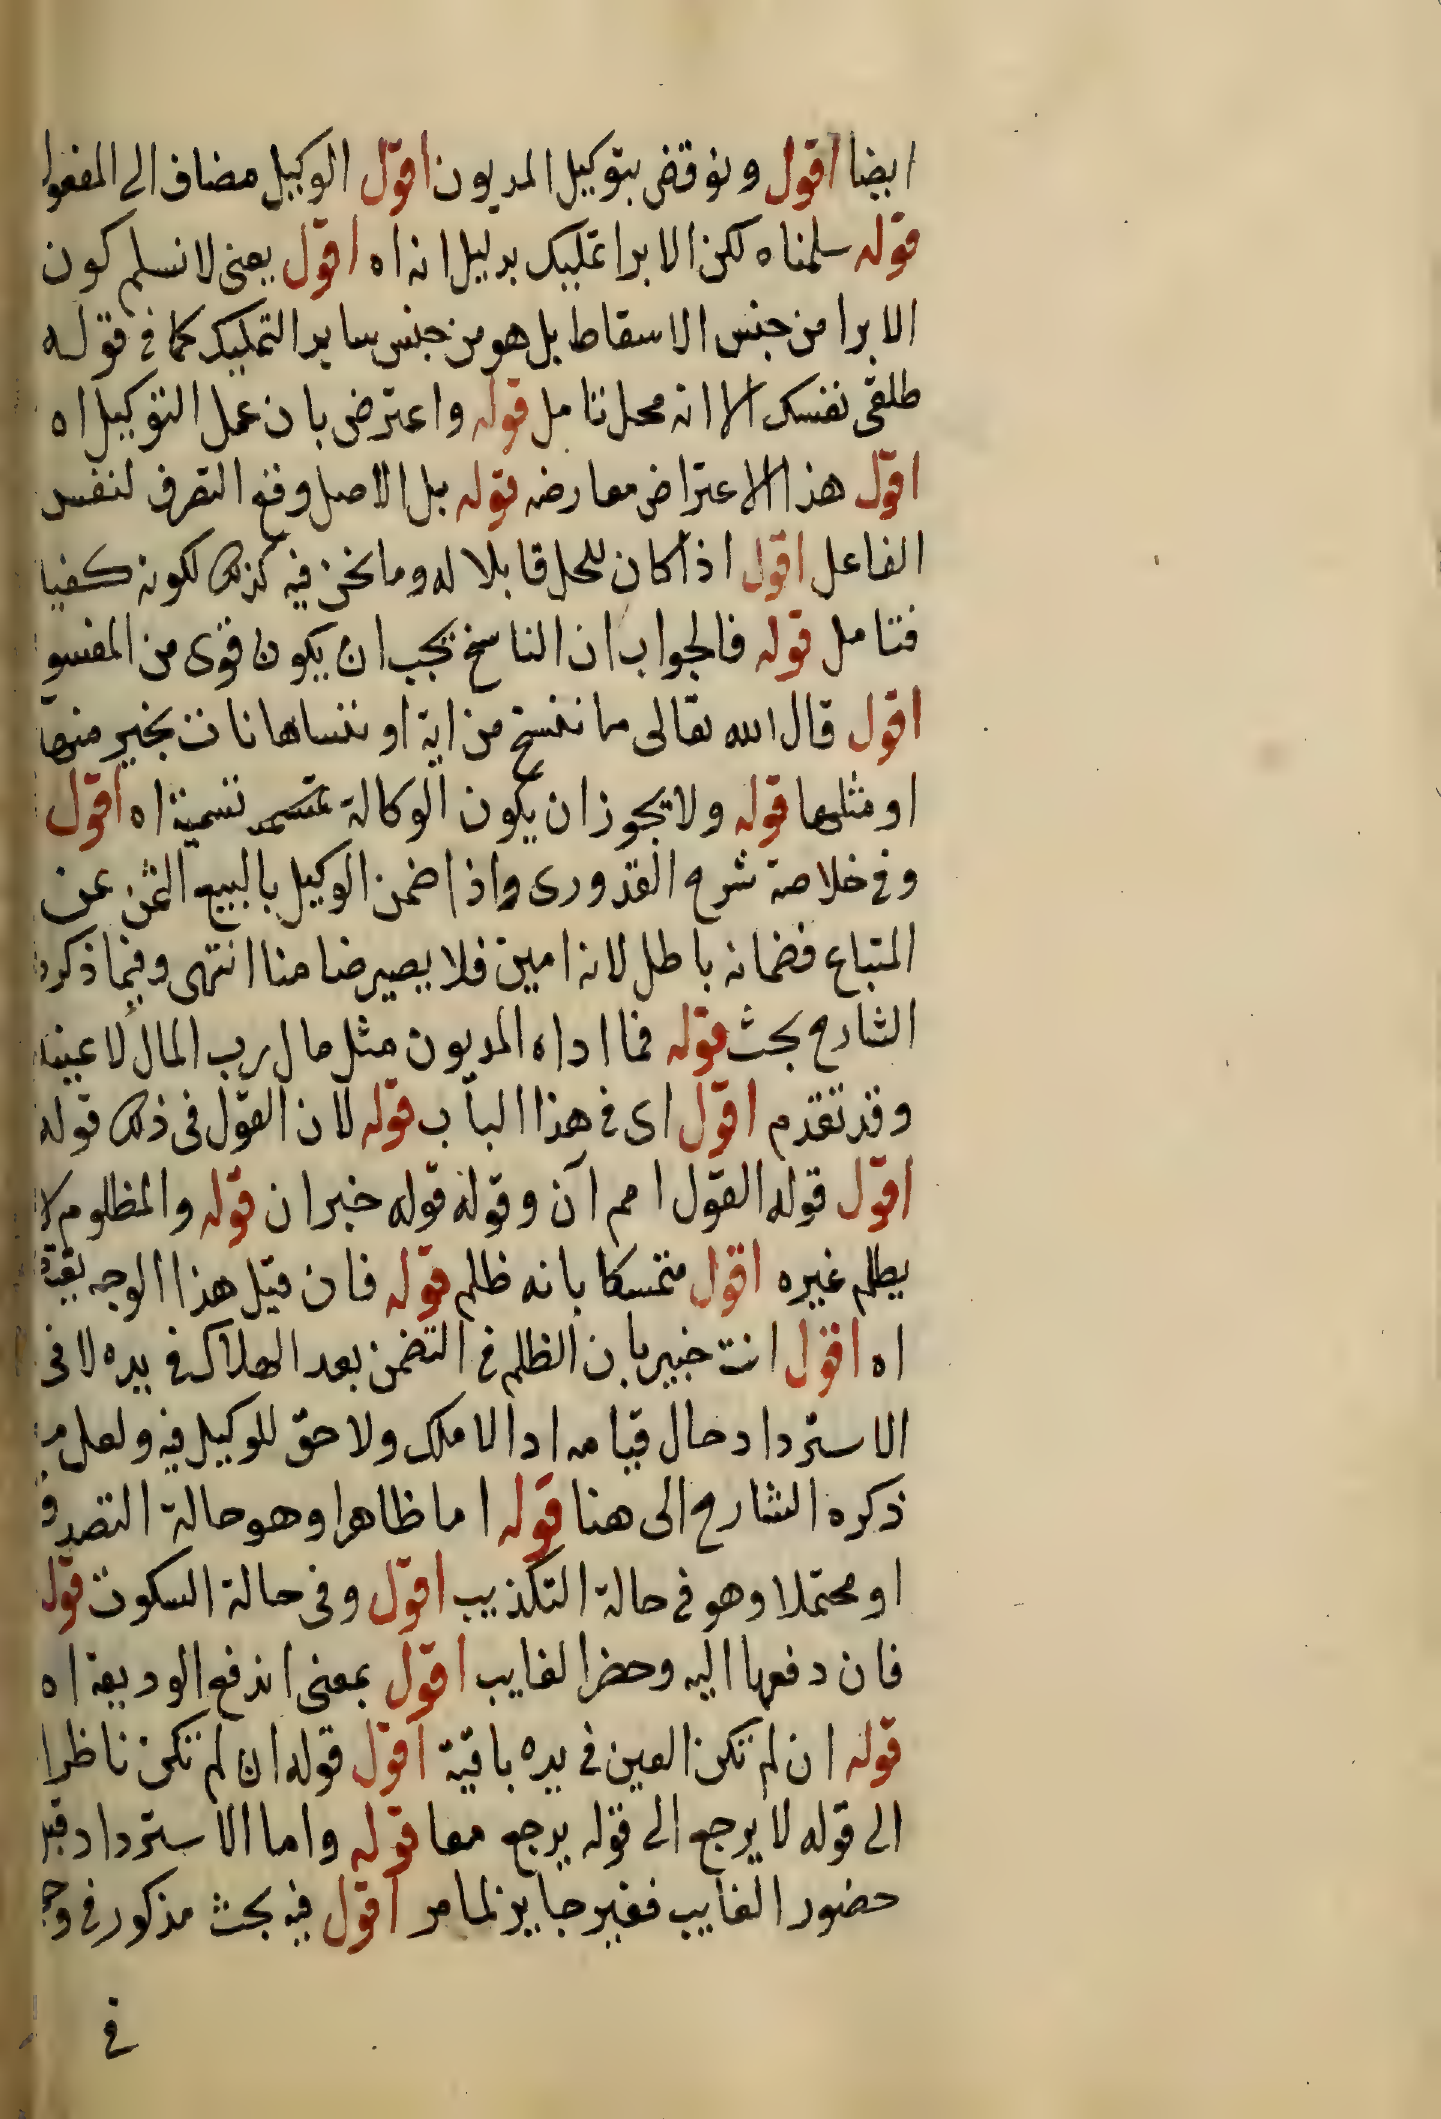 ايضا اقول ونوقض بتوكيل المديون اقول الوكيل مضاف الى المفعول
قوله سلمناه لكن الابرا تمليك بدليل انه اه اقول يعنى لا نسلم كون
الابرا من جنس الاسقاط بل هو من جنس ساير التمليك كما فى قوله
طلقى نفسك الا انه محل تامل قوله واعترض بان عمل التوكيل اه
اقول هذا الاعتراض معارضه قوله بل الاصل وقع التصرف لنفس
الفاعل اقول اذا كان المحل قابلا له وما نحن فيه كذلك لكونه كفيا
فتامل قوله فالجواب ان الناسخ يجب ان يكون قوى من المفسو
اقول قال الله تعالى ما ننسخ من اية او ننساها نات بخير منها
او مثلها قوله ولا يجوز ان يكون الوكالة تسمية اه اقول
وفى خلاصة شرح القدورى واذا ضمن الوكيل بالبيع الثمن عن
المتباع فضمانه باطل لانه امين فلا يصير ضامنا انتهى وفيما ذكره
الشارح بحث قوله فما اداه المديون مثل مال رب المال لا عينه
وقد تقدم اقول اى فى هذا الباب قوله لان القول فى ذلك قوله
اقول قوله القول امم آن وقوله قوله خبر ان قوله والمظلوم لا
يظلم غيره اقول متمسكا بانه ظلم قوله فان قيل هذا الوجه يقتة
اه اقول انت خبير بان الظلم فى التضمن بعد الهلاك فى يده لا فى
الاسترداد حال قيامه اذ الاملك ولا حق للوكيل فيه ولعل مر
ذكره الشارح الى هنا قوله اما ظاهرا وهو حالة التصدق
او محتملا وهو فى حالة التكذيب اقول وفى حالة السكوت قول
فان دفعها اليه وحضر الغايب اقول بمعنى اندفع الوديعة اه
قوله ان لم تكن العين فى يده باقية اقول قوله ان لم تكن ناظرا
الى قوله لا يرجع الى قوله يرجع معا قوله واما الاسترداد قبل
حضور الغايب فغير جايز لما مر اقول فيه بحث مذكور فى وج
فى